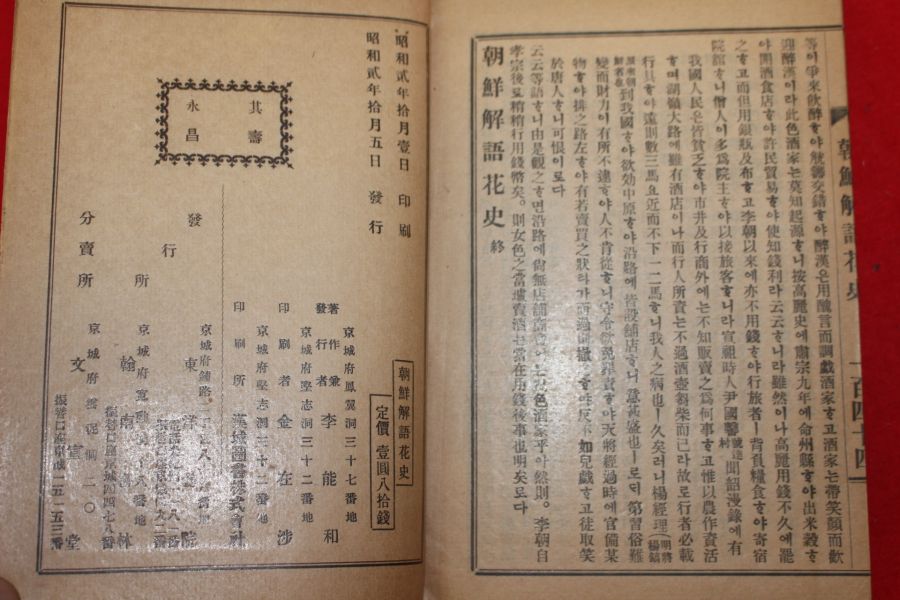 朝鮮解語花史 一百四十四
等이爭來飮醉ᄒᆞ야觥籌交錯ᄒᆞ야醉漢은用醜言而調戱酒家ᄒᆞ고酒家는帶笑顔而歡
迎醉漢이라此色酒家는莫知起源ᄒᆞ니按高麗史에肅宗九年에命州縣ᄒᆞ야出米穀ᄒᆞ
야開酒食店ᄒᆞ야許民貿易ᄒᆞ야使知錢利라云云ᄒᆞ니라雖然이나高麗用錢不久에罷
之ᄒᆞ고而但用銀瓶及布ᄒᆞ고李朝以來에亦不用錢ᄒᆞ야行旅者ㅣ背負糧食ᄒᆞ야寄宿
院館ᄒᆞ니僧人이多爲院主ᄒᆞ야以接旅客ᄒᆞ니라宣祖時人尹國馨 村 聞韶漫錄에有
我國人民은皆貧乏ᄒᆞ야市井及行商外에는不知販賣之爲何事ᄒᆞ고惟以農作資活
ᄒᆞ며湖嶺大路에雖有酒店이나而行人所賣는不過酒壺蒭柴而已라故로行者必載
行具ᄒᆞ야遠則數三馬요近而不下一二馬ᄒᆞ니我人之病也ㅣ久矣러니楊經理(明將楊鎬)
到我國ᄒᆞ야欲効中原ᄒᆞ야沿路에皆設舖店ᄒᆞ니意甚盛也ㅣ로되第習俗難
變而財力이有所不逮ᄒᆞ야人不肯從ᄒᆞ니守令欲免罪責ᄒᆞ야天將經過時에官備某
物ᄒᆞ야排之路左ᄒᆞ야有若賣買之狀이라가而過則撤ᄒᆞ야反不如兒戱ᄒᆞ고徒取笑
於唐人ᄒᆞ니可恨이로다
云云等語ᄒᆞ니由是觀之ᄒᆞ면沿路에尙無店舖 色酒家乎아然則。李朝自
孝宗後로稍稍行用錢幣矣。則女色之當壚賣酒는當在用錢後事也明矣로다
朝鮮解語花史 終
昭和貳年拾月壹日 印刷
昭和貳年拾月五日 發行
其壽
永昌
朝鮮解語花史
定價 壹圓八拾錢
京城府鳳翼洞三十七番地
著作兼發行者 李能和
京城府堅志洞三十二番地
印刷者 金在涉
京城府堅志洞三十二番地
印刷所 漢城圖書株式會社
發行所
京城府鍾路二丁目八
東洋書院
京城府寬勳洞 十八番地
翰南書林
振替口座京城四四七八番
分賣所
京城府 洞二〇
文 堂
振替口座京城二五一五三番